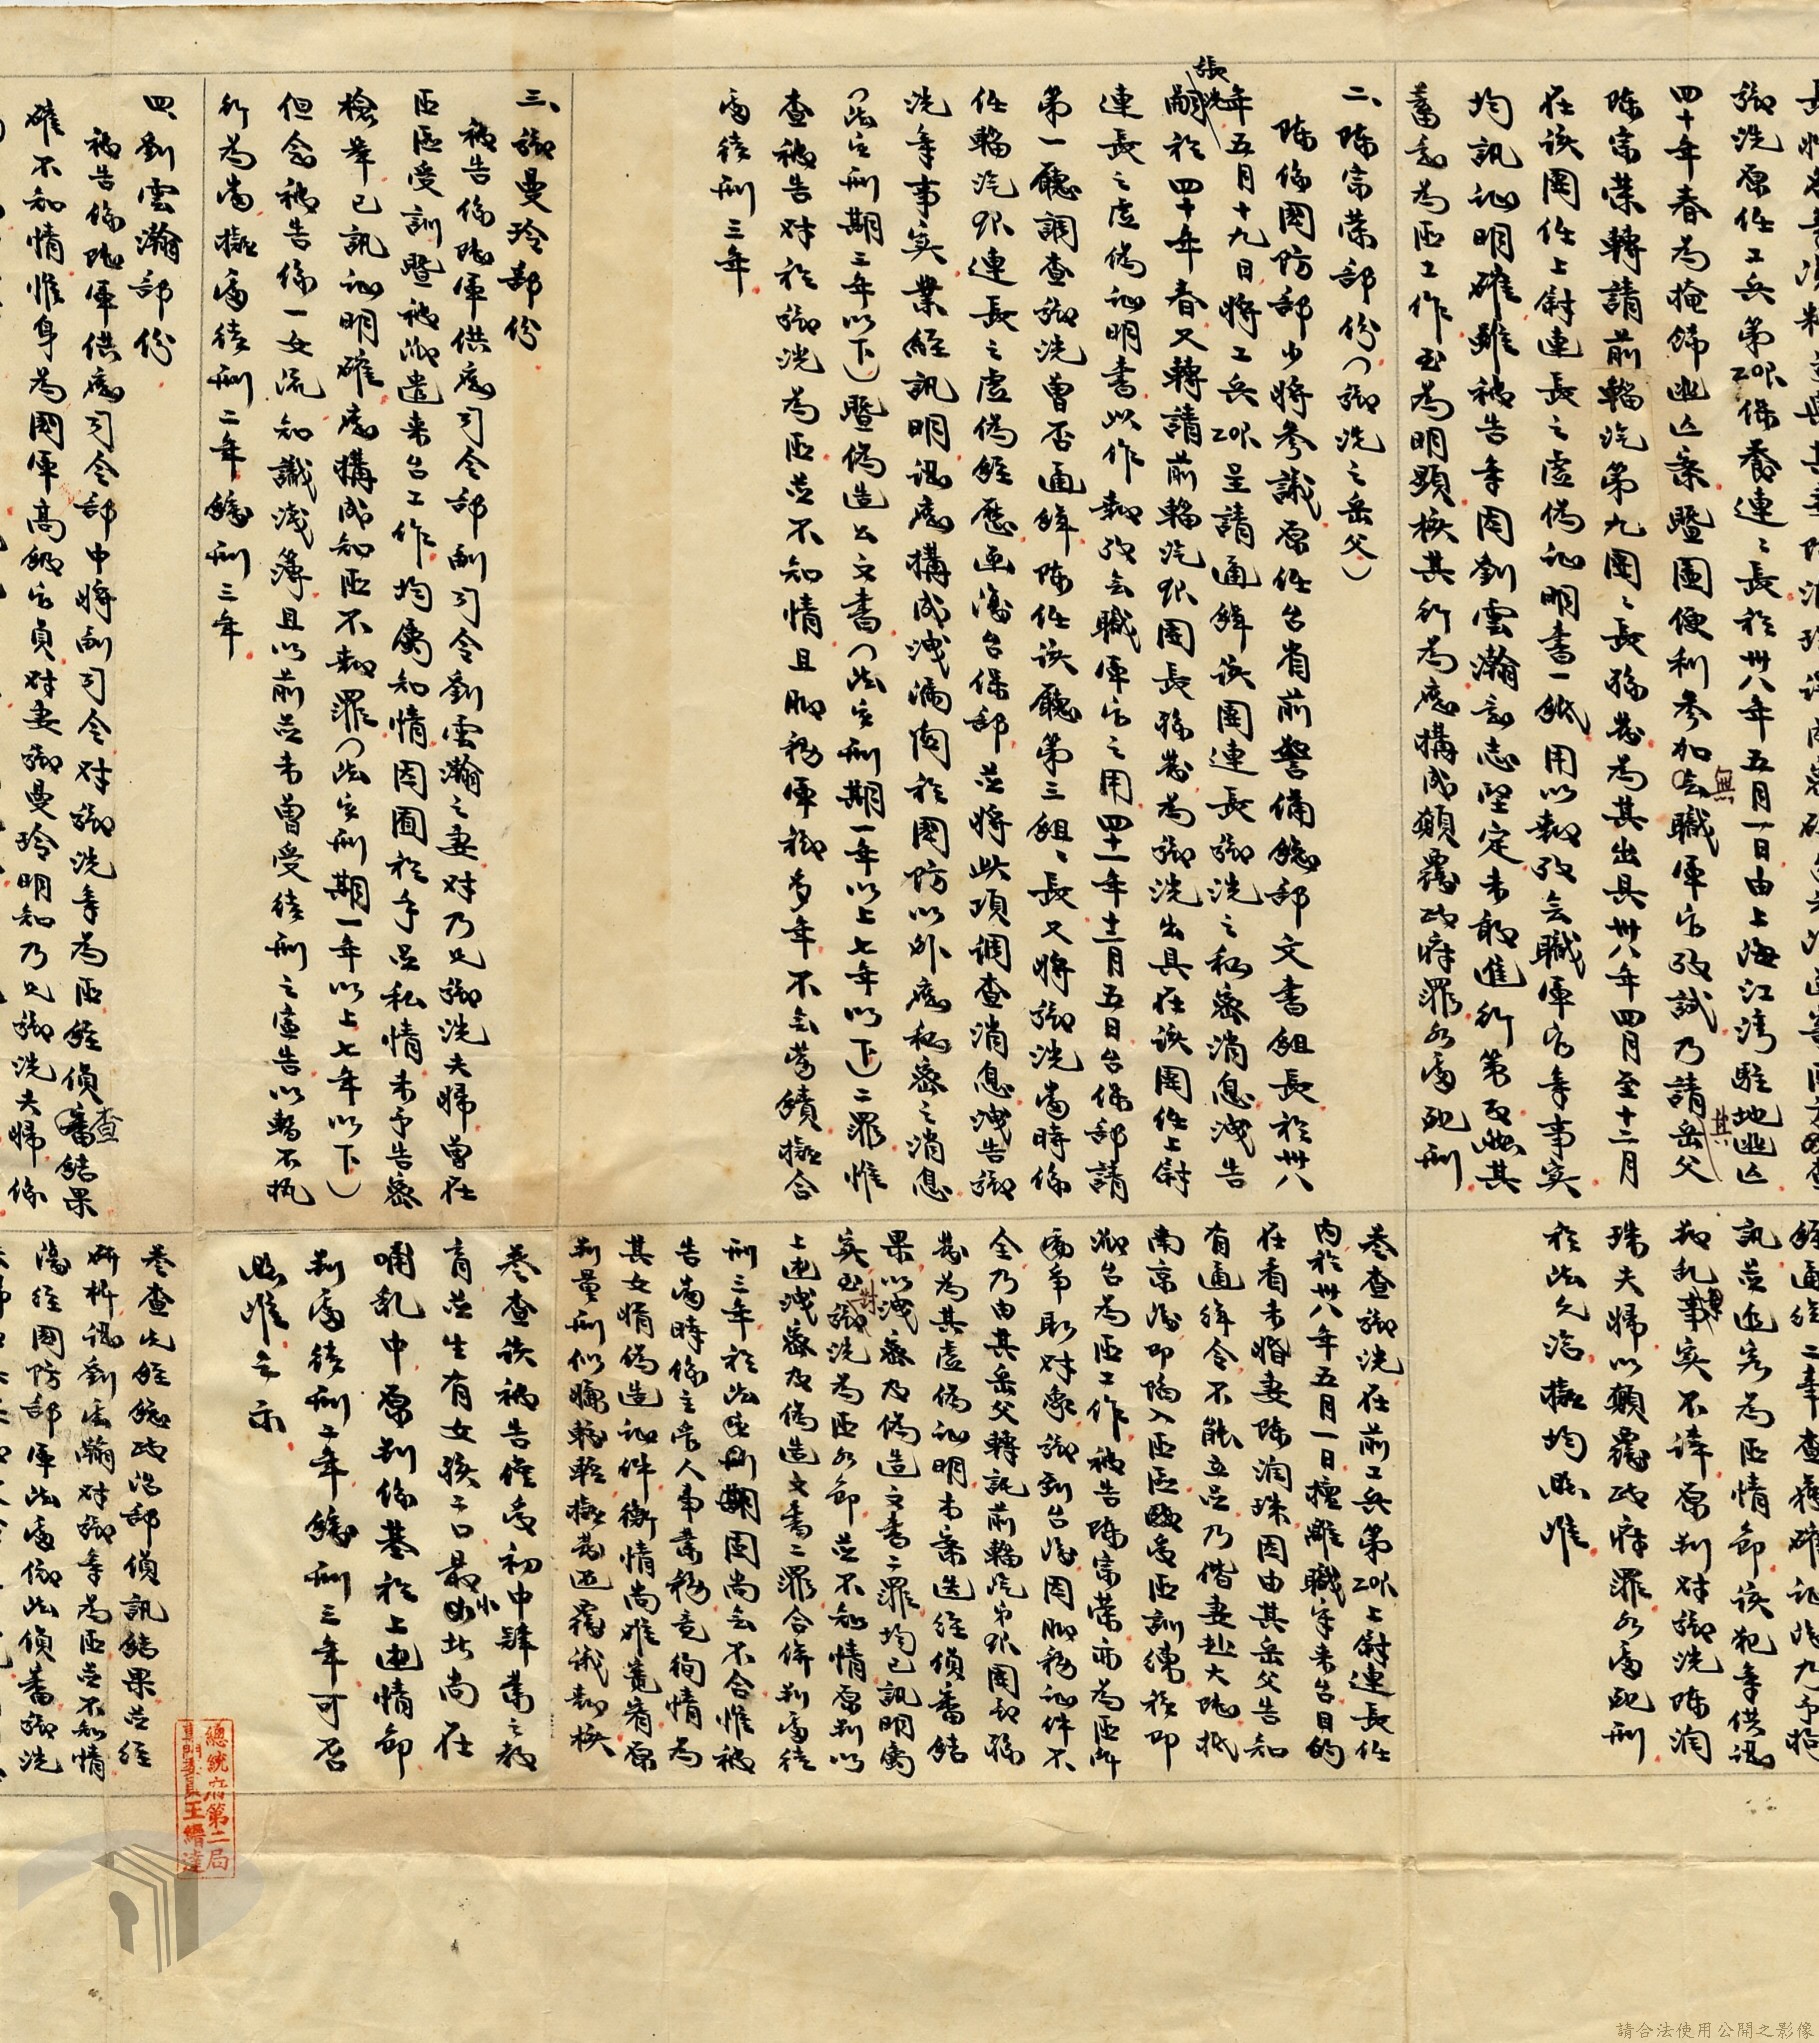 張洗原任工兵第20R保養連連長於卅八年五月一日由上海江灣駐地逃亡
四十年春為掩飾逃亡案暨圖便利參加無職軍官考試乃請其岳父
陳宗棠轉請前輜汽第九團團長孫崧為其出具卅八年四月至十二月
在該團任上尉連長之虛偽証明書一紙用以報攷無職軍官等事實
均訊証明確雖被告等因劉雲瀚意志堅定未敢進行策反然其
蓄意為匪工作至為明顯核其行為應構成顛覆政府罪各處死刑
二、陳宗棠部份（張洗之岳父）
陳係國防部少將參議原任台省前警備總部文書組長於卅八
年五月十九日將工兵20R呈請通緝該團連長張洗之秘密消息洩告
張洗於四十年春又轉請前輜汽9R團長孫崧為張洗出具在該團任上尉
連長之虛偽証明書以作報攷無職軍官之用四十一年十二月五日台保部請
第一廳調查張洗曾否通緝陳任該廳第三組組長又將張洗當時係
任輜汽9R連長之虛偽經歷函復台保部並將此項調查消息洩告張
洗等事實業經訊明認應構成洩漏關於國防以外應秘密之消息
（法定刑期三年以下）暨偽造公文書（法定刑期一年以上七年以下）二罪惟
查被告對於張洗為匪並不知情且服務軍鄉多年不無勞績擬合
處徒刑三年
三、張曼玲部份
被告係陸軍供應司令部副司令劉雲瀚之妻對乃兄張洗夫婦曾在
匪區受訓暨被派遣來台工作均屬知情因囿於手足私情未予告密
檢舉已訊証明確應構成知匪不報罪（法定刑期一年以上七年以下）
但念被告係一女流知識淺薄且以前並未曾受徒刑之宣告以暫不執
行為當擬處徒刑二年緩刑三年
四、劉雲瀚部份
被告係陸軍供應司令部中將副司令對張洗等為匪經偵查結果
確不知情惟身為國軍高級官員對妻張曼玲明知乃兄張洗夫婦係
訊並追究為匪情節該犯等供認
叛亂事實不諱原判對張洗陳潤
珠夫婦以顛覆政府罪各處死刑
於法允洽擬均照准
卷查張洗在前工兵第20R上尉連長任
內於卅八年五月一日擅離職守來台目的
在看未婚妻陳潤珠因由其岳父告知
有通緝令不能立足乃偕妻赴大陸抵
南京後即陷入匪區感受匪訓練於即
派台為匪工作被告陳宗棠亦為匪所
爭取對象張到台後因服務証件不
全乃由其岳父轉託前輜汽第9R團長孫
崧為其虛偽証明本案迭經偵審結
果以洩密及偽造文書二罪均已訊明屬
實至對張洗為匪各節並不知情原判以
上述洩密及偽造文書二罪合併判處徒
刑三年於法定刑期固尚無不合惟被
告當時係主管人事業務竟徇情為
其女婿偽造証件衡情尚難寬宥原
判量刑似嫌較輕擬發還覆議報核
卷查該被告僅受初中肄業之教
育並生有女孩子口最小者尚在
哺乳中原判係基於上述情節
判處徒刑二年緩刑三年可否
照准乞示
卷查先經總政治部偵訊結果並經
研析認劉雲瀚對張等為匪並不知情
復經國防部軍法處依法偵審張洗
總統府第二局
專門委員王縉達
請合法使用公開之影像